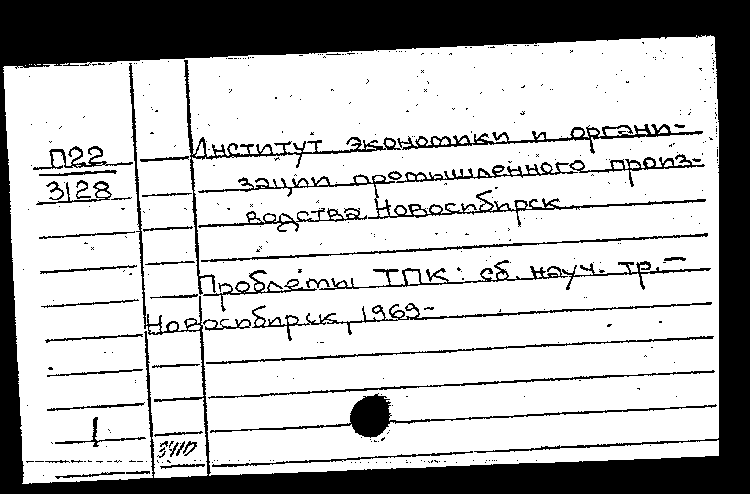 П22
3128
Институт экономики и органи-
зации промышленного произ-
водства Новосибирск
Проблемы ТПК: сб. науч. тр.—
Новосибирск, 1969-
1